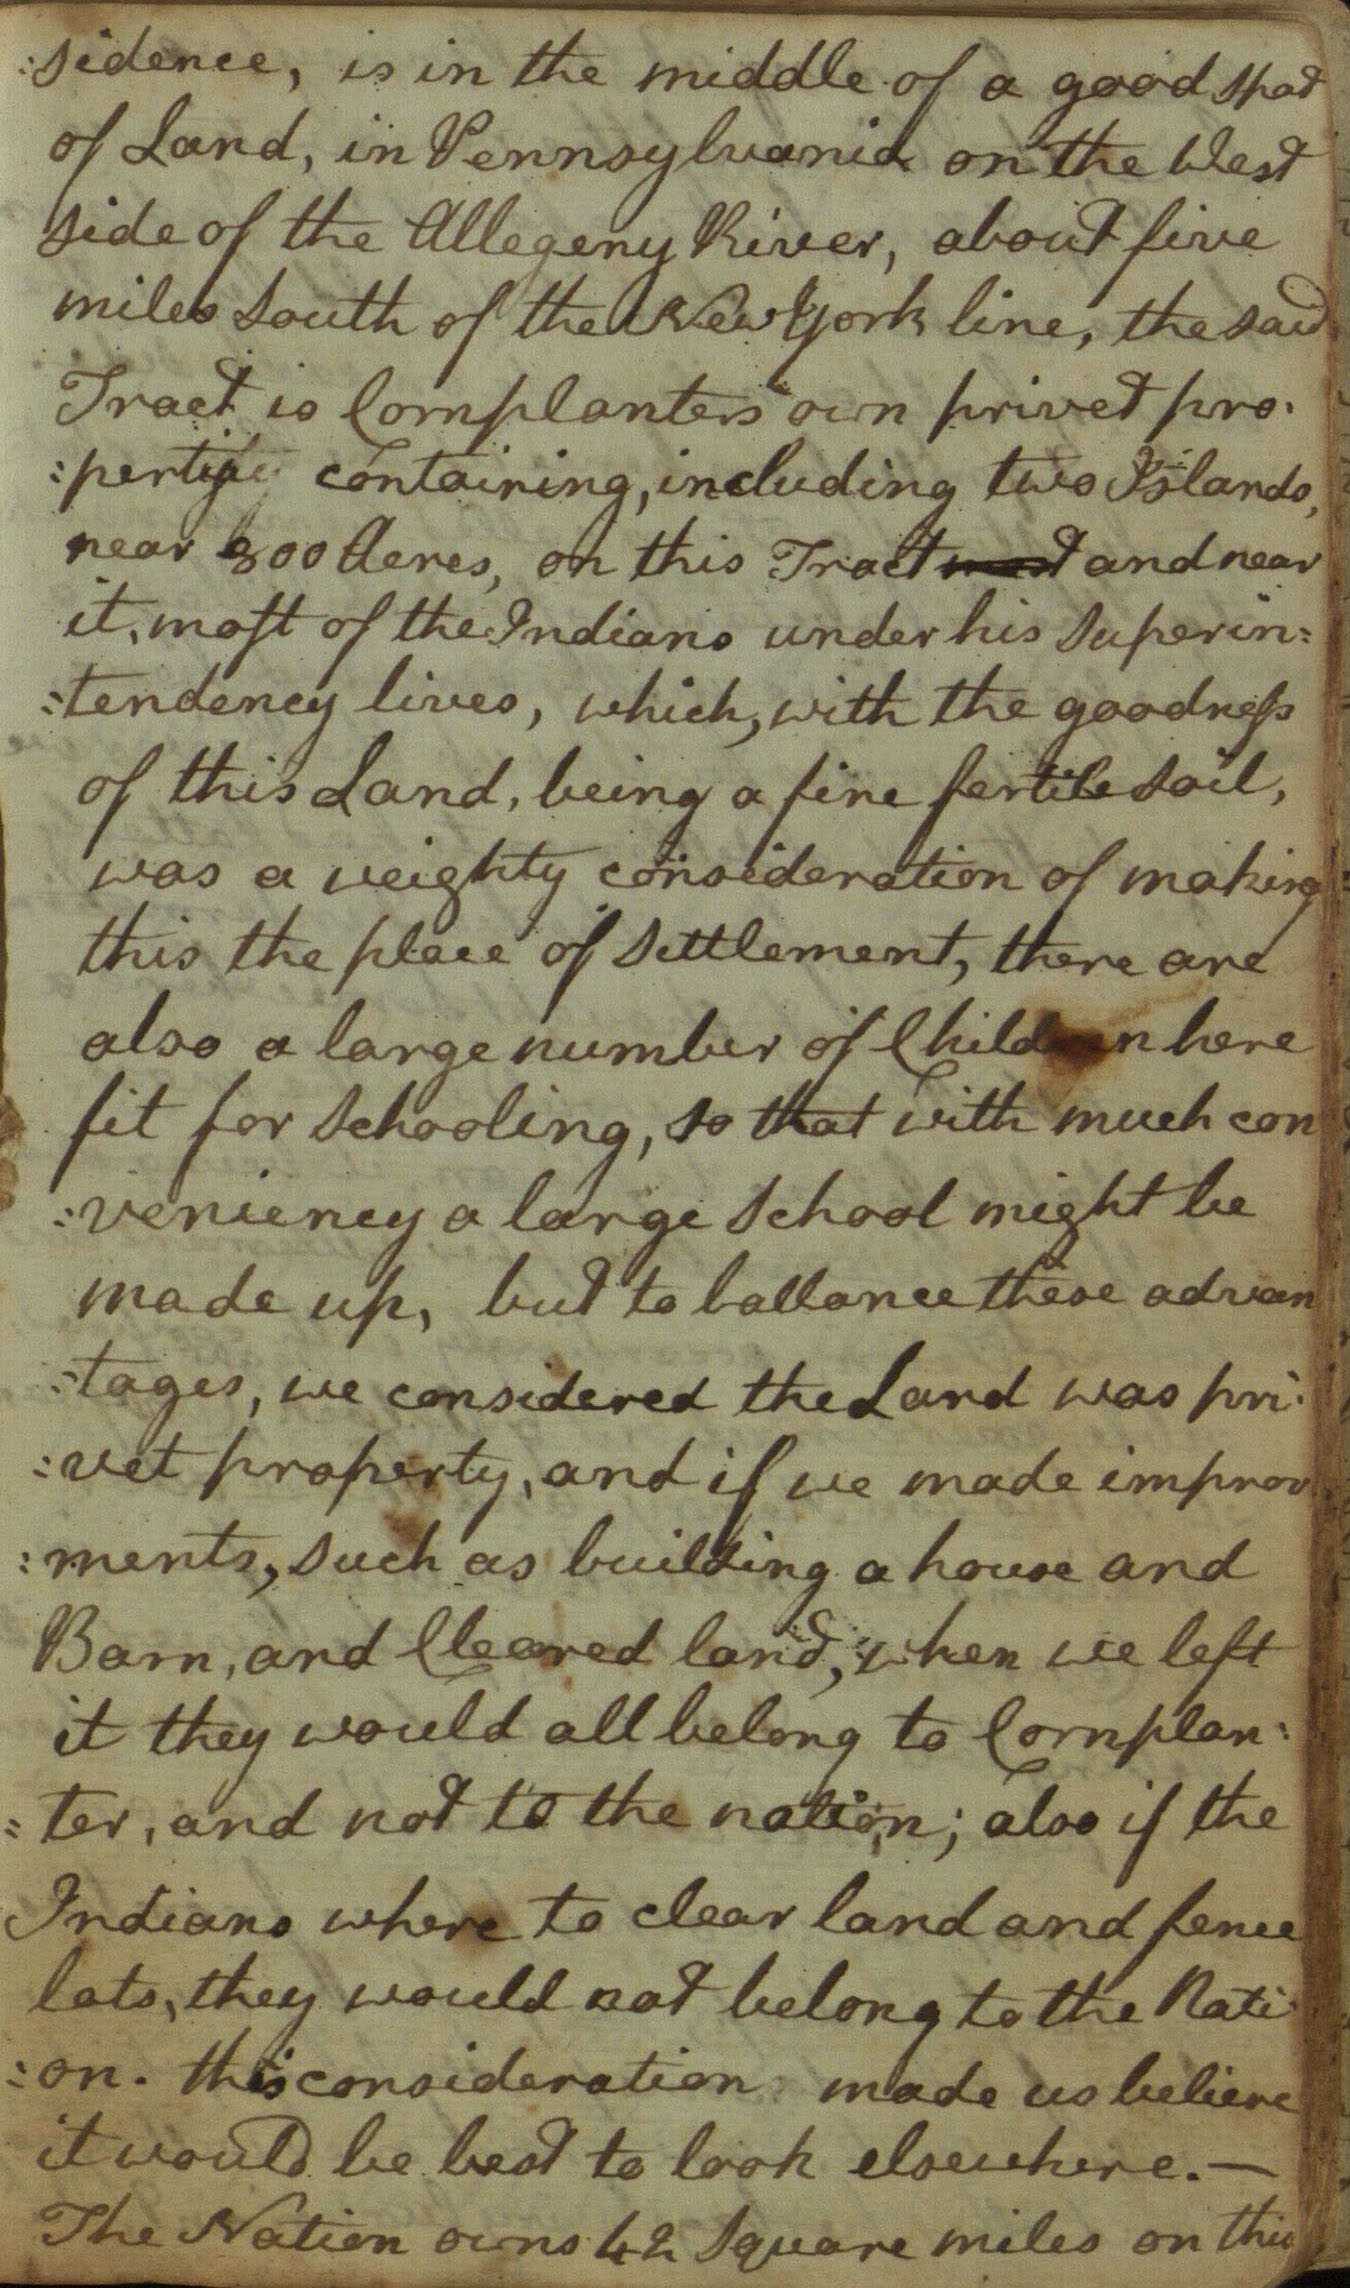 :sidence, is in the middle of a good spot
of Land, in Pennsylvania on the West
side of the Allegeny River, about five
miles South of the New York line, the said
Tract is Cornplanters own privet pro:
:perty containing, including two Islands,
near 800 Acres, on this Tract and near
it, most of the Indians under his Superin:
:tendency lives, which, with the goodness
of this Land, being a fine fertile soil,
was a weighty consideration of making
this the place of Settlement, there are
also a large number of Children here
fit for Schooling, so that with much con
:veniency a large School might be
made up, but to ballance these advan
:tages, we considered the Land was pri:
:vet property, and if we made improv
:ments, such as building a house and
Barn, and Cleared land, when we left
it they would all belong to Cornplan:
:ter, and not to the nation; also if the
Indians where to clear land and fence
lots, they would not belong to the Nati
:on. this consideration made us believe
it would be best to look elsewhere. —
The Nation owns 42 Square miles on this